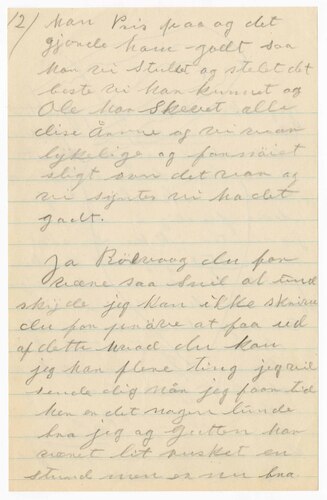 12/ han Pris paa og det
gjorde ham godt saa
han vi stullet og stelet det
beste vi han kunnet og
Ole han Skevet alle
dise Aarene og vi var
lykelige og fornøiet
sligt som det var og
vi syntes vi ha det
godt.
Ja Rölvaag du for
være saa snil at und
skylde jeg kan ikke skrive
du for prøve at faa ud
af dette hvad du kan
jeg har flere ting jeg vil
sende dig når jeg faar tid
hen er det nogenlunde
bra jeg og Gutten har
været lit rusket en
stund men er nu bra